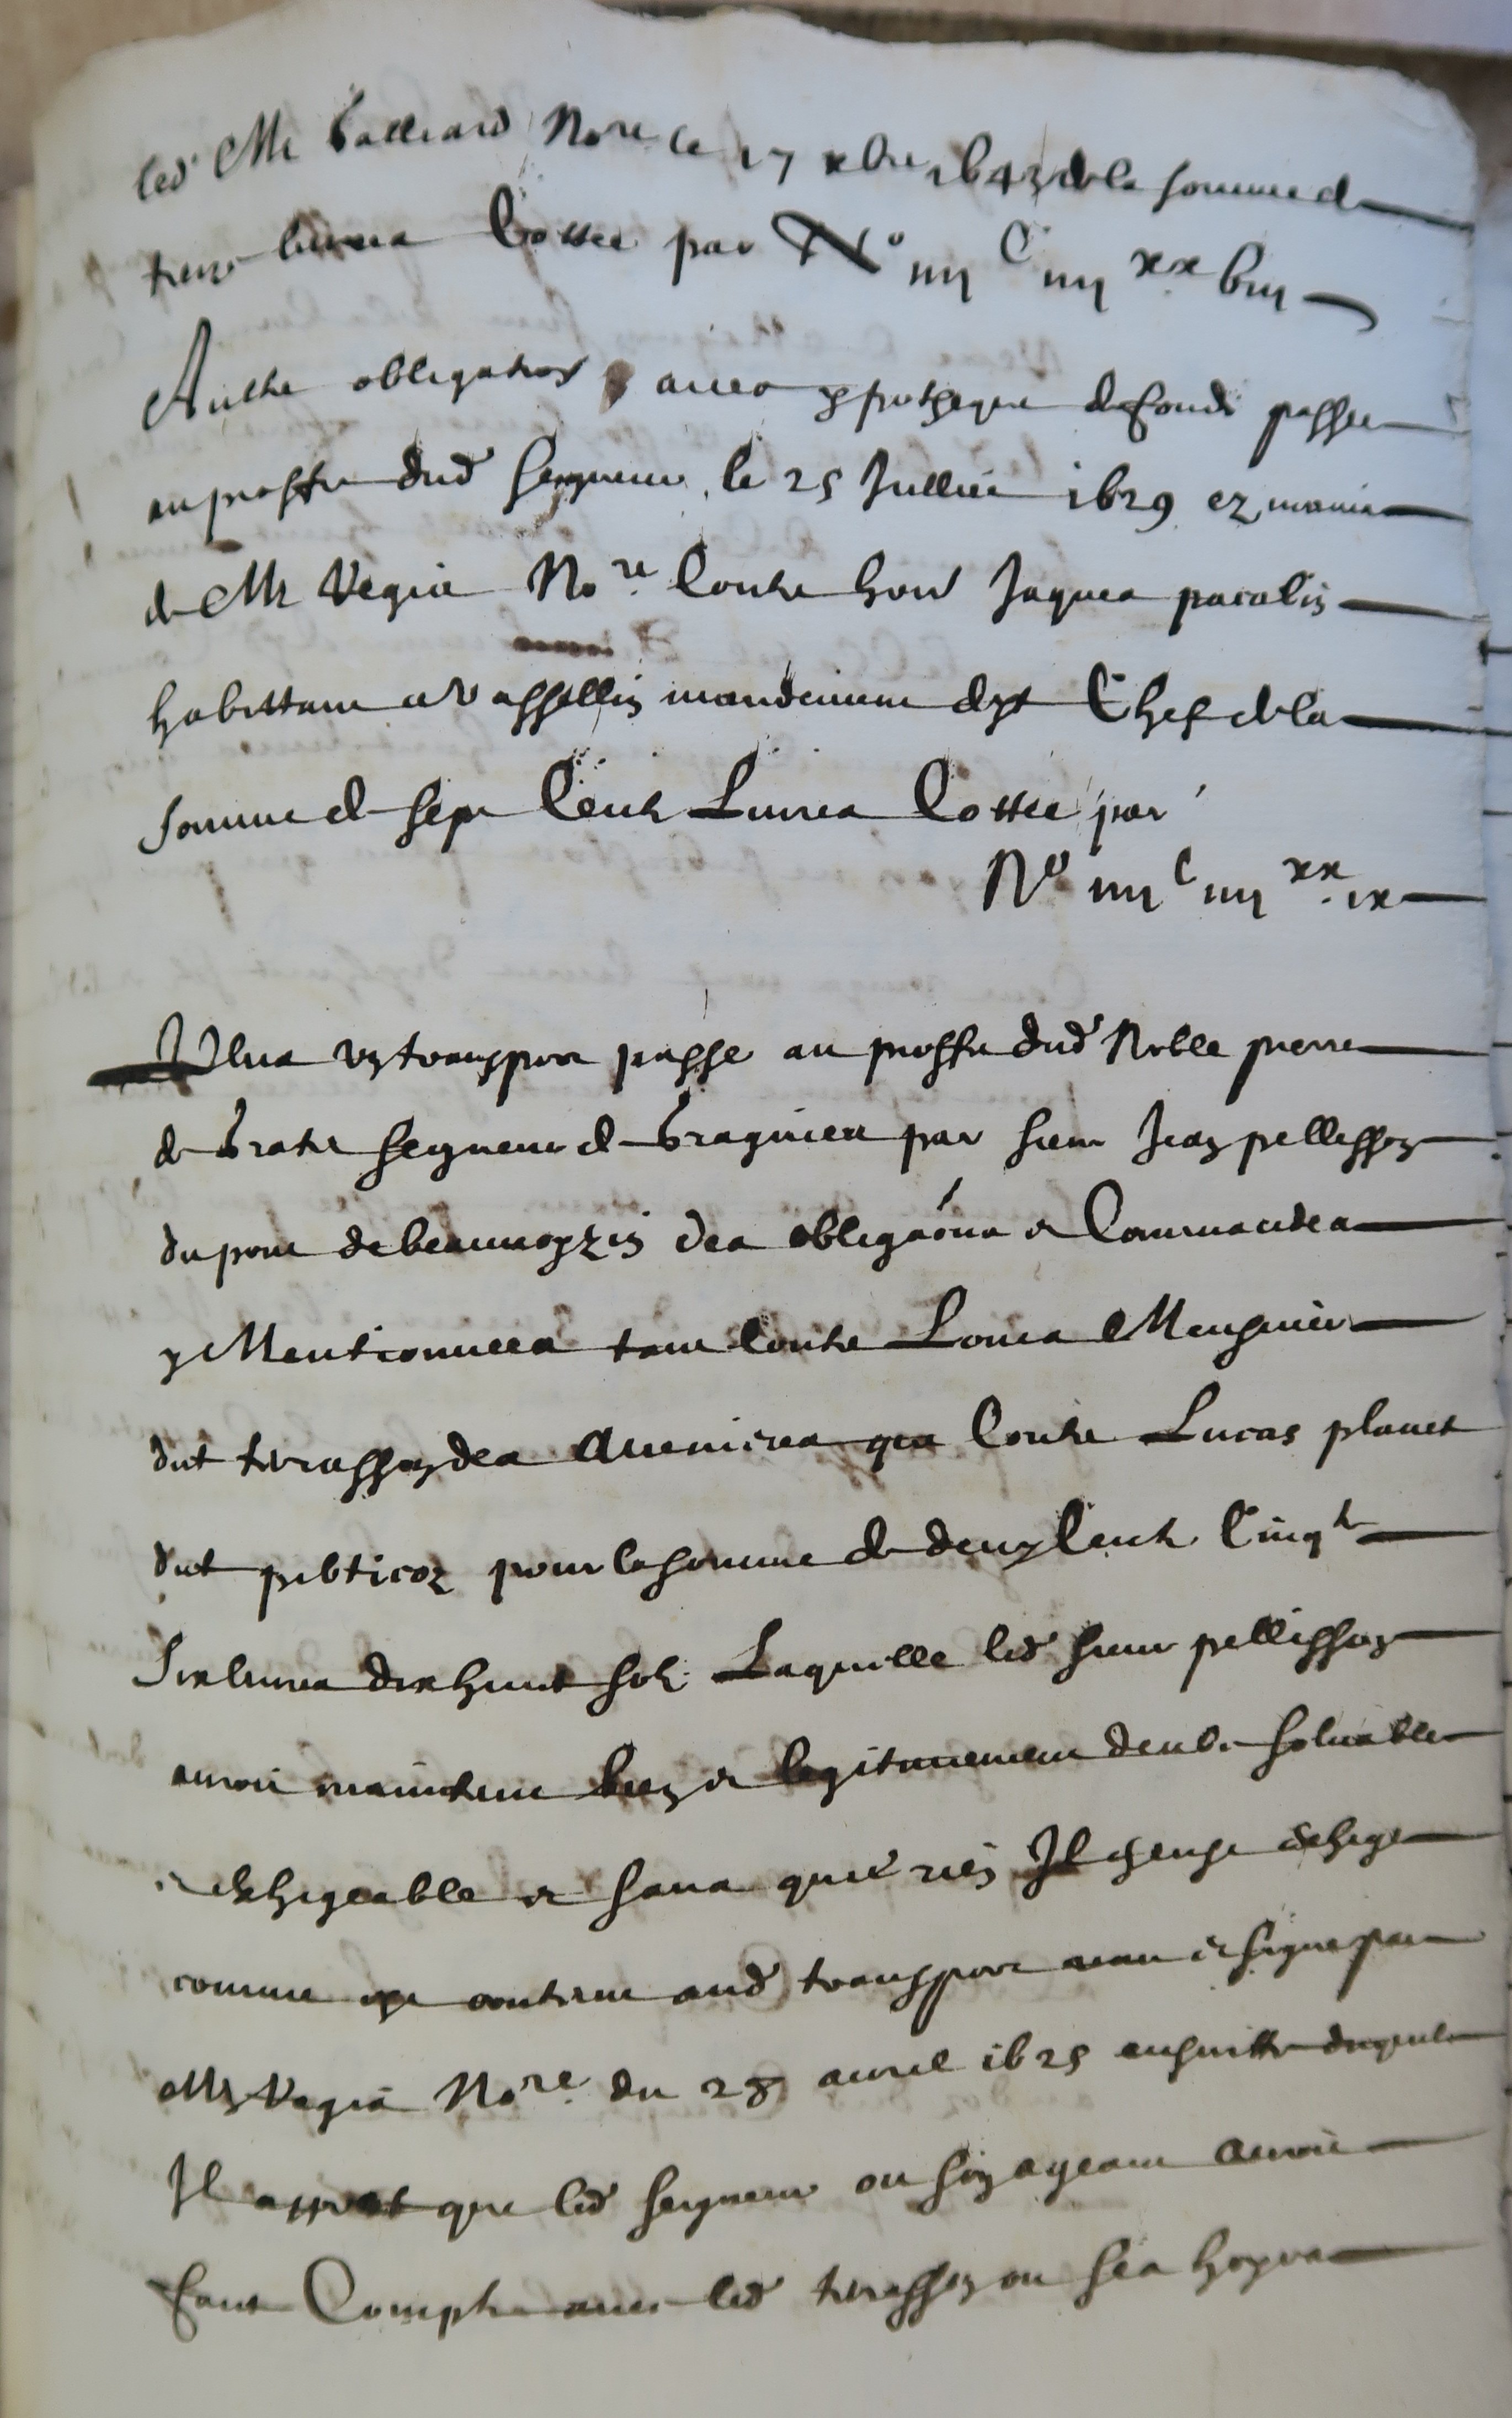 led Me Galliard Nore le 17 xbre 1643 de la somme de
livres Cottee par No iiii C iiii xx viii
Aultre obligation avec ypotheque de fonds passee
au proffit dud seigneur le 25 Juillie 1629 ez mains
de Me Vegie Nore Contre hon Jaques paralin
habittant a Vassellin mandement dyt Chef de la
somme de sept Cents Livres Cottee par
No iiii C iiii xx ix
Plus un transport passe au proffit dud Noble pierre
de Prate seigneur de Braguieu par sieur Jean pellisson
du pont de beauvoyzin des obligaons et Commandes
y Mentionnees tant Contre Louis Meusnier
dit terrasson des Avenires que Contre Lucas planet
dit pour la somme de deux Cents Cinqte
Six livres dix huict sols Laquelle led sieur pellisson
auroit maintenu bien et legitimement deube solvable
et exhigeable et sans que rien Il en euse exhige
comme est contenu aud transport receu et signe par
Me Vegie Nore du 28 avril 1625 ensuitte duquel
Il appert que led seigneur ou son ageant auroit
faict Compte avec led terrasson ou ses hoyrs